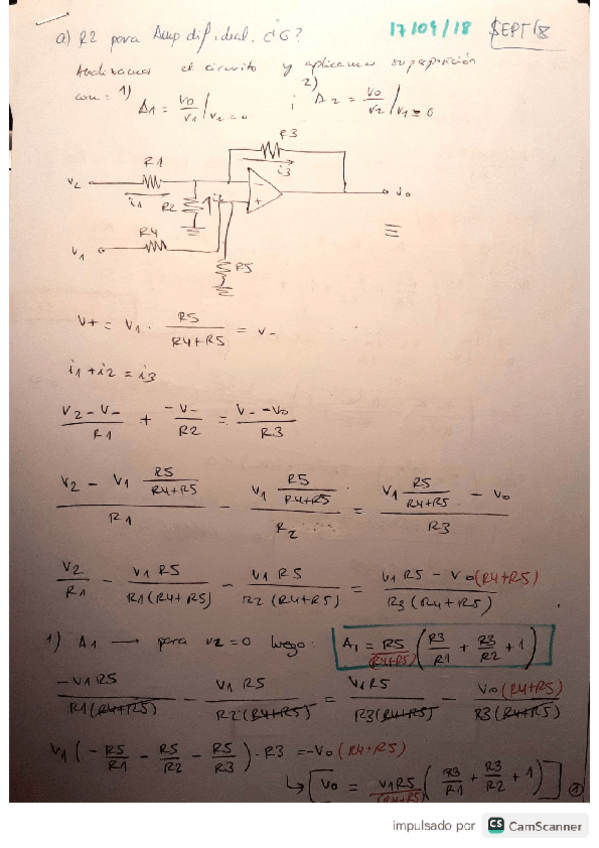 a) R2 para Amp dif ideal. ¿G?
17/09/18 SEPT/8
Analizamos el circuito y aplicamos superposición
con: 1) A1 = V0/V1 | V2=0 ; 2) A2 = V0/V2 | V1=0
R3
R1
V2
i3
i1
R2
i2
-
+
V0
R4
≡
V1
R5
V+ = V1 · R5/(R4+R5) = V-
i1 + i2 = i3
(V2 - V-)/R1 + (-V-)/R2 = (V- - V0)/R3
(V2 - V1 R5/(R4+R5))/R1 - (V1 R5/(R4+R5))/R2 = (V1 R5/(R4+R5) - V0)/R3
V2/R1 - V1 R5/(R1(R4+R5)) - V1 R5/(R2(R4+R5)) = (V1 R5 - V0(R4+R5))/(R3(R4+R5))
1) A1 → para V2=0 luego: A1 = R5/(R4+R5) (R3/R1 + R3/R2 + 1)
-V1 R5/(R1(R4+R5)) - V1 R5/(R2(R4+R5)) = V1 R5/(R3(R4+R5)) - V0(R4+R5)/(R3(R4+R5))
V1 (-R5/R1 - R5/R2 - R5/R3) · R3 = -V0(R4+R5)
↳ [V0 = V1 R5/(R4+R5) (R3/R1 + R3/R2 + 1)] ①
impulsado por CS CamScanner